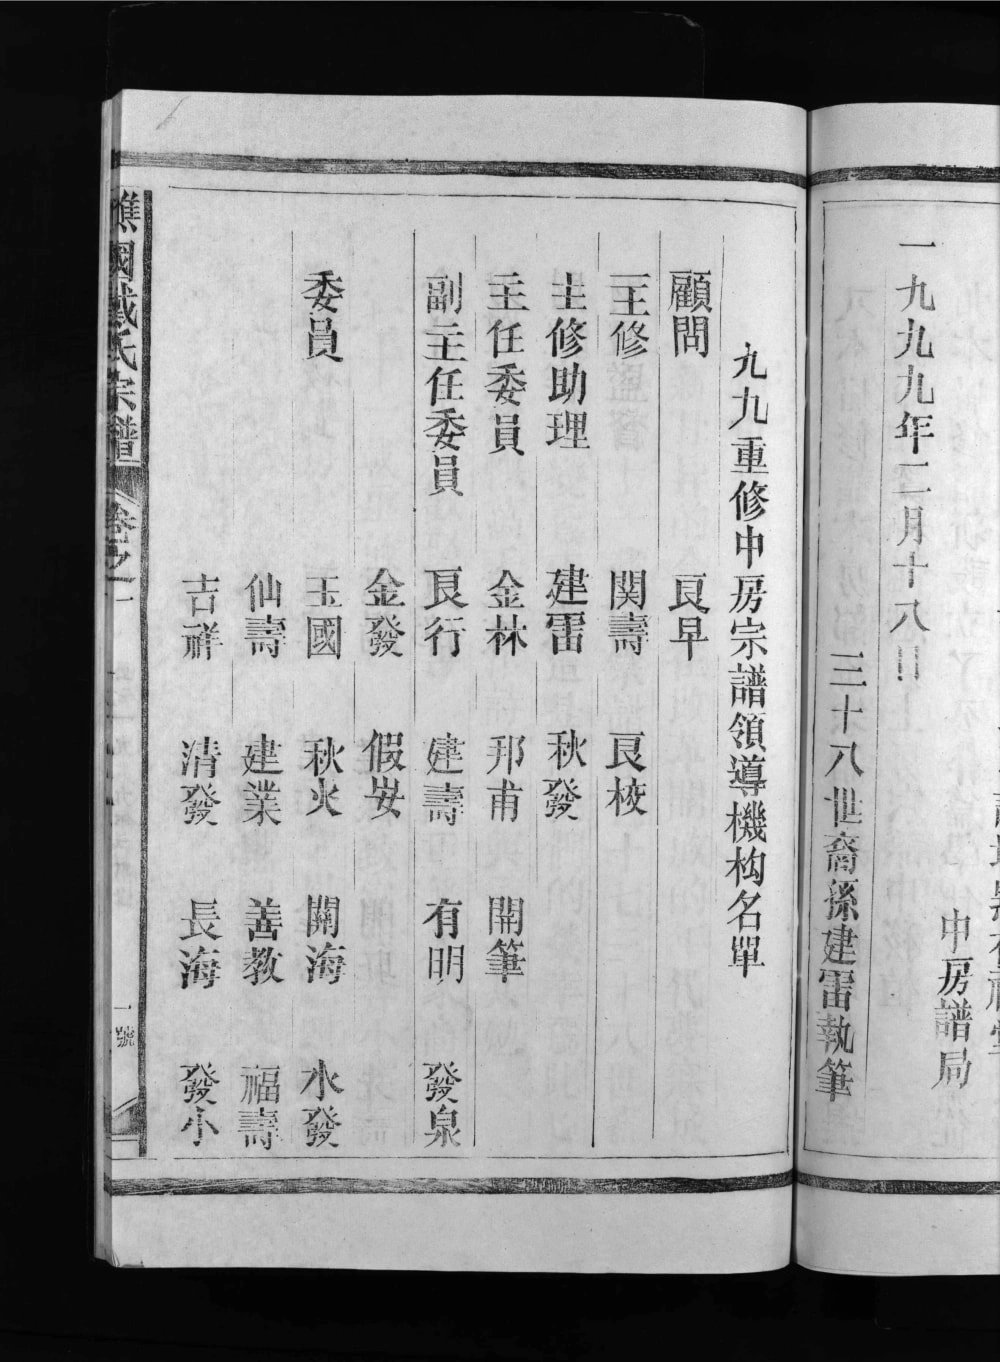 一九九九年二月十八日
三十八世裔孫建雷執筆
中房譜局
九九重修中房宗譜領導機构名單
顧問 良早
主修 関壽 良校
主修助理 建雷 秋發
主任委員 金林 邦甫 開筆
副主任委員 良行 建壽 有明 發泉
金發 假安
委員 玉國 秋火 關海 水發
仙壽 建業 善教 福壽
吉祥 清發 長海 發小
譙國戴氏宗譜 卷之一 一號